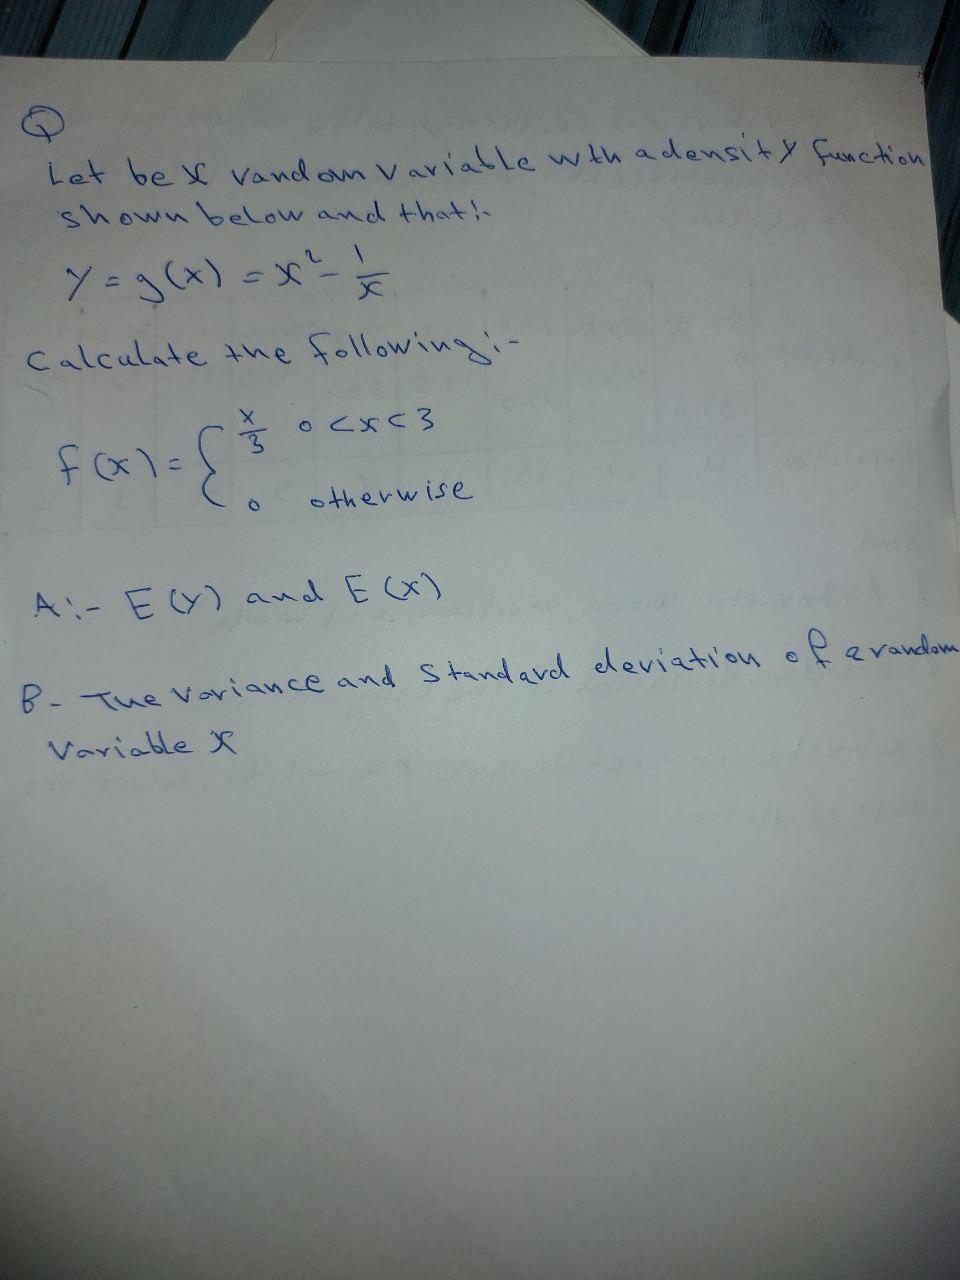 Q
Let be X vandom variable wth a density function
shown below and that:-
y = g(x) = x² - 1/x
Calculate the following:-
f(x) = { x/3 0 < x < 3
0 otherwise
A:- E(y) and E(x)
B- The variance and standard deviation of a random
Variable X